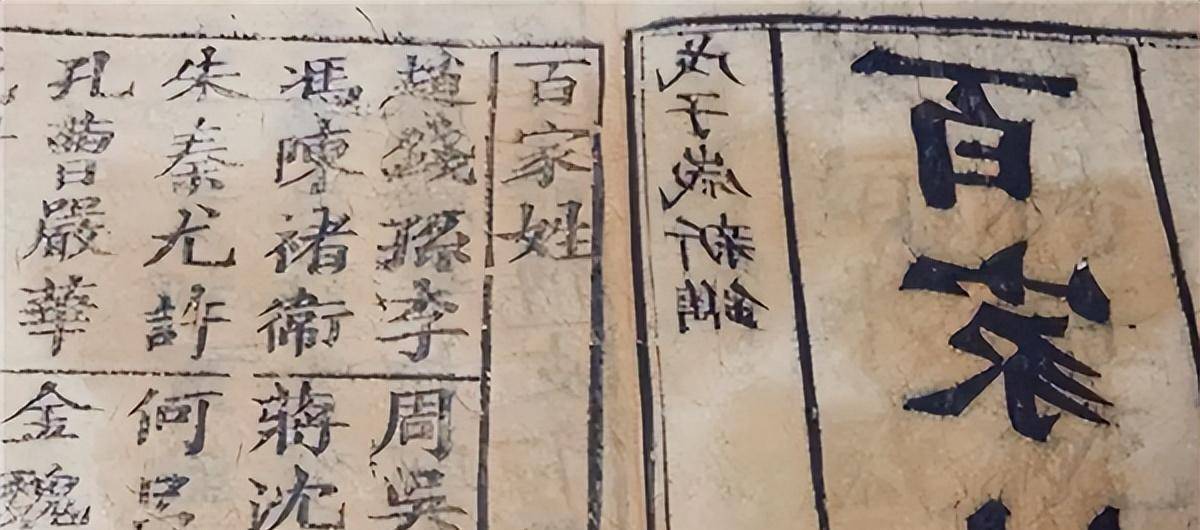 百家
歲新鐫
百家姓
趙錢孫李 周吳
馮陳褚衛 蔣沈
朱秦尤許 何呂
孔曹嚴華 金魏